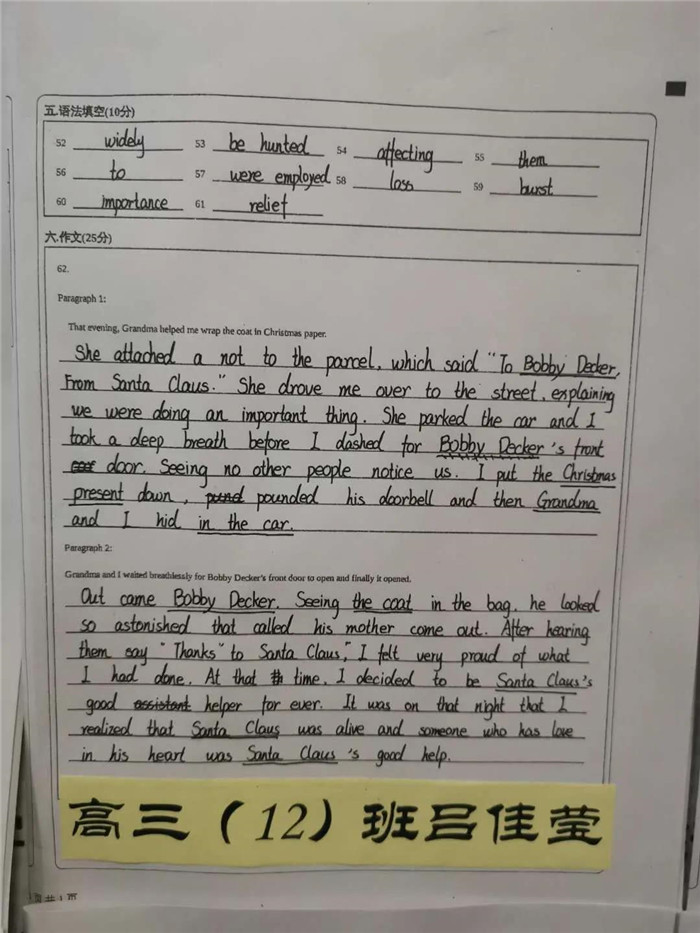 五.语法填空(10分)
52 widely 53 be hunted 54 affecting 55 them
56 to 57 were employed 58 loss 59 burst
60 importance 61 relief
六.作文(25分)
62.
Paragraph 1:
That evening, Grandma helped me wrap the coat in Christmas paper.
She attached a not to the parcel, which said "To Bobby Decker,
From Santa Claus." She drove me over to the street, explaining
we were doing an important thing. She parked the car and I
took a deep breath before I dashed for Bobby Decker's front
door. Seeing no other people notice us. I put the Christmas
present down, pounded his doorbell and then Grandma
and I hid in the car.
Paragraph 2:
Grandma and I waited breathlessly for Bobby Decker's front door to open and finally it opened.
Out came Bobby Decker. Seeing the coat in the bag, he looked
so astonished that called his mother come out. After hearing
them say "Thanks" to Santa Claus," I felt very proud of what
I had done. At that time, I decided to be Santa Claus's
good assistant helper for ever. It was on that night that I
realized that Santa Claus was alive and someone who has love
in his heart was Santa Claus's good help.
高三（12）班吕佳莹
共1页